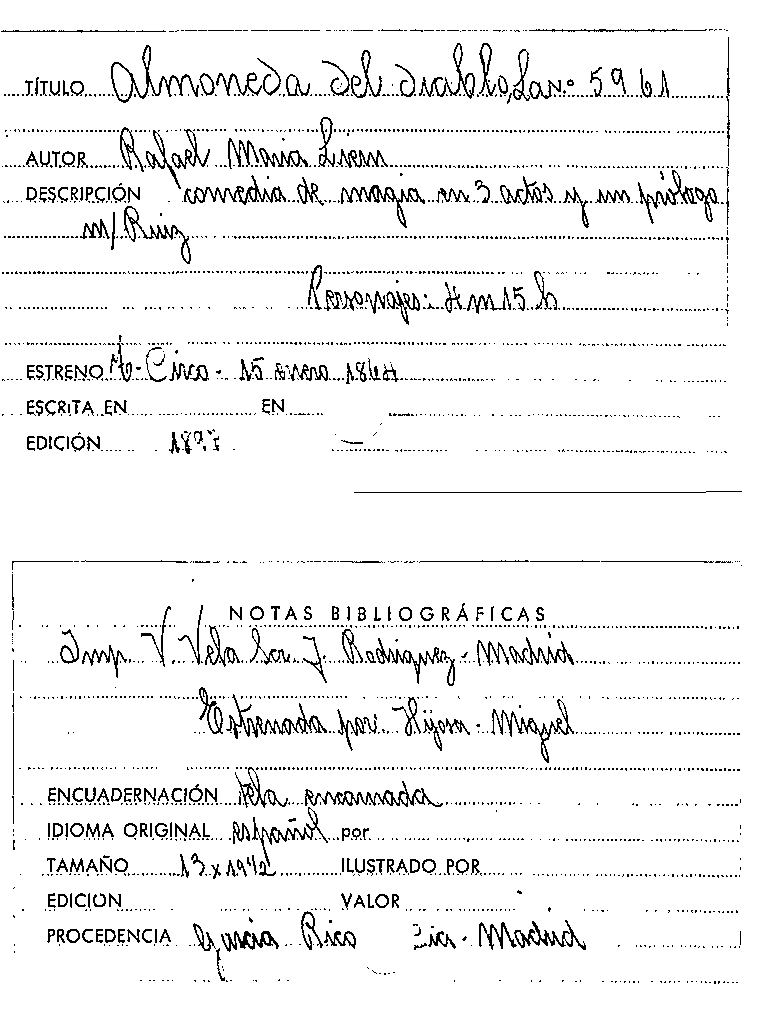 TÍTULO Almoneda del diablo, La n.º 5961
AUTOR Rafael Maria Liern
DESCRIPCIÓN comedia de magia en 3 actos y un prólogo
m/ Ruiz
Personajes: 4 m 15 h
ESTRENO T- Circo - 15 enero 1864
ESCRITA EN EN
EDICIÓN 189
NOTAS BIBLIOGRÁFICAS
Imp. V. Vela Suc. J. Rodriguez - Madrid
Estrenada por: Hijosa - Miguel
ENCUADERNACIÓN tela encarnada
IDIOMA ORIGINAL español por
TAMAÑO 13 x 19 1/2 ILUSTRADO POR
EDICIÓN VALOR
PROCEDENCIA Garcia Rico Cia - Madrid